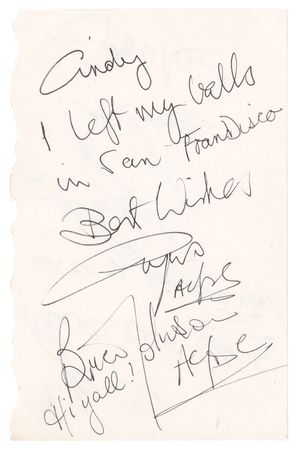 Cindy
I Left my balls
in San Francisco
Best Wishes
Angus
AC/DC
Brian Johnson
Hi yall! AC/DC